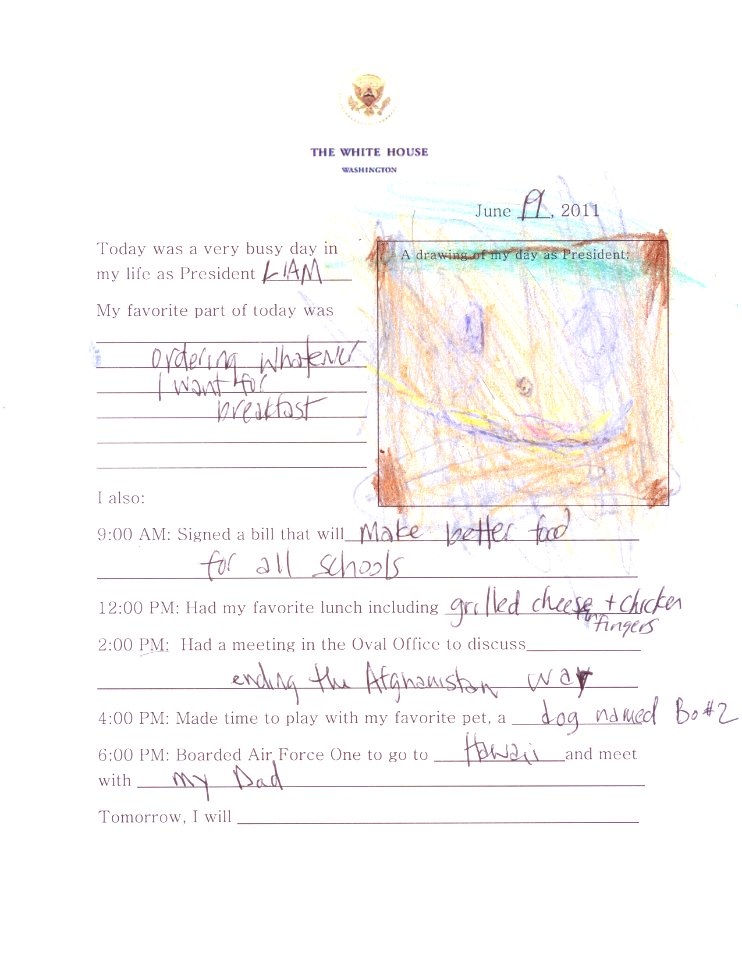 THE WHITE HOUSE
WASHINGTON
June 19, 2011
Today was a very busy day in
my life as President LIAM
A drawing of my day as President:
My favorite part of today was
ordering whatever
I want for
breakfast
I also:
9:00 AM: Signed a bill that will Make better food
for all schools
12:00 PM: Had my favorite lunch including grilled cheese + chicken
fingers
2:00 PM: Had a meeting in the Oval Office to discuss
ending the Afghanistan war
4:00 PM: Made time to play with my favorite pet, a dog named Bo #2
6:00 PM: Boarded Air Force One to go to Hawaii and meet
with my Dad
Tomorrow, I will